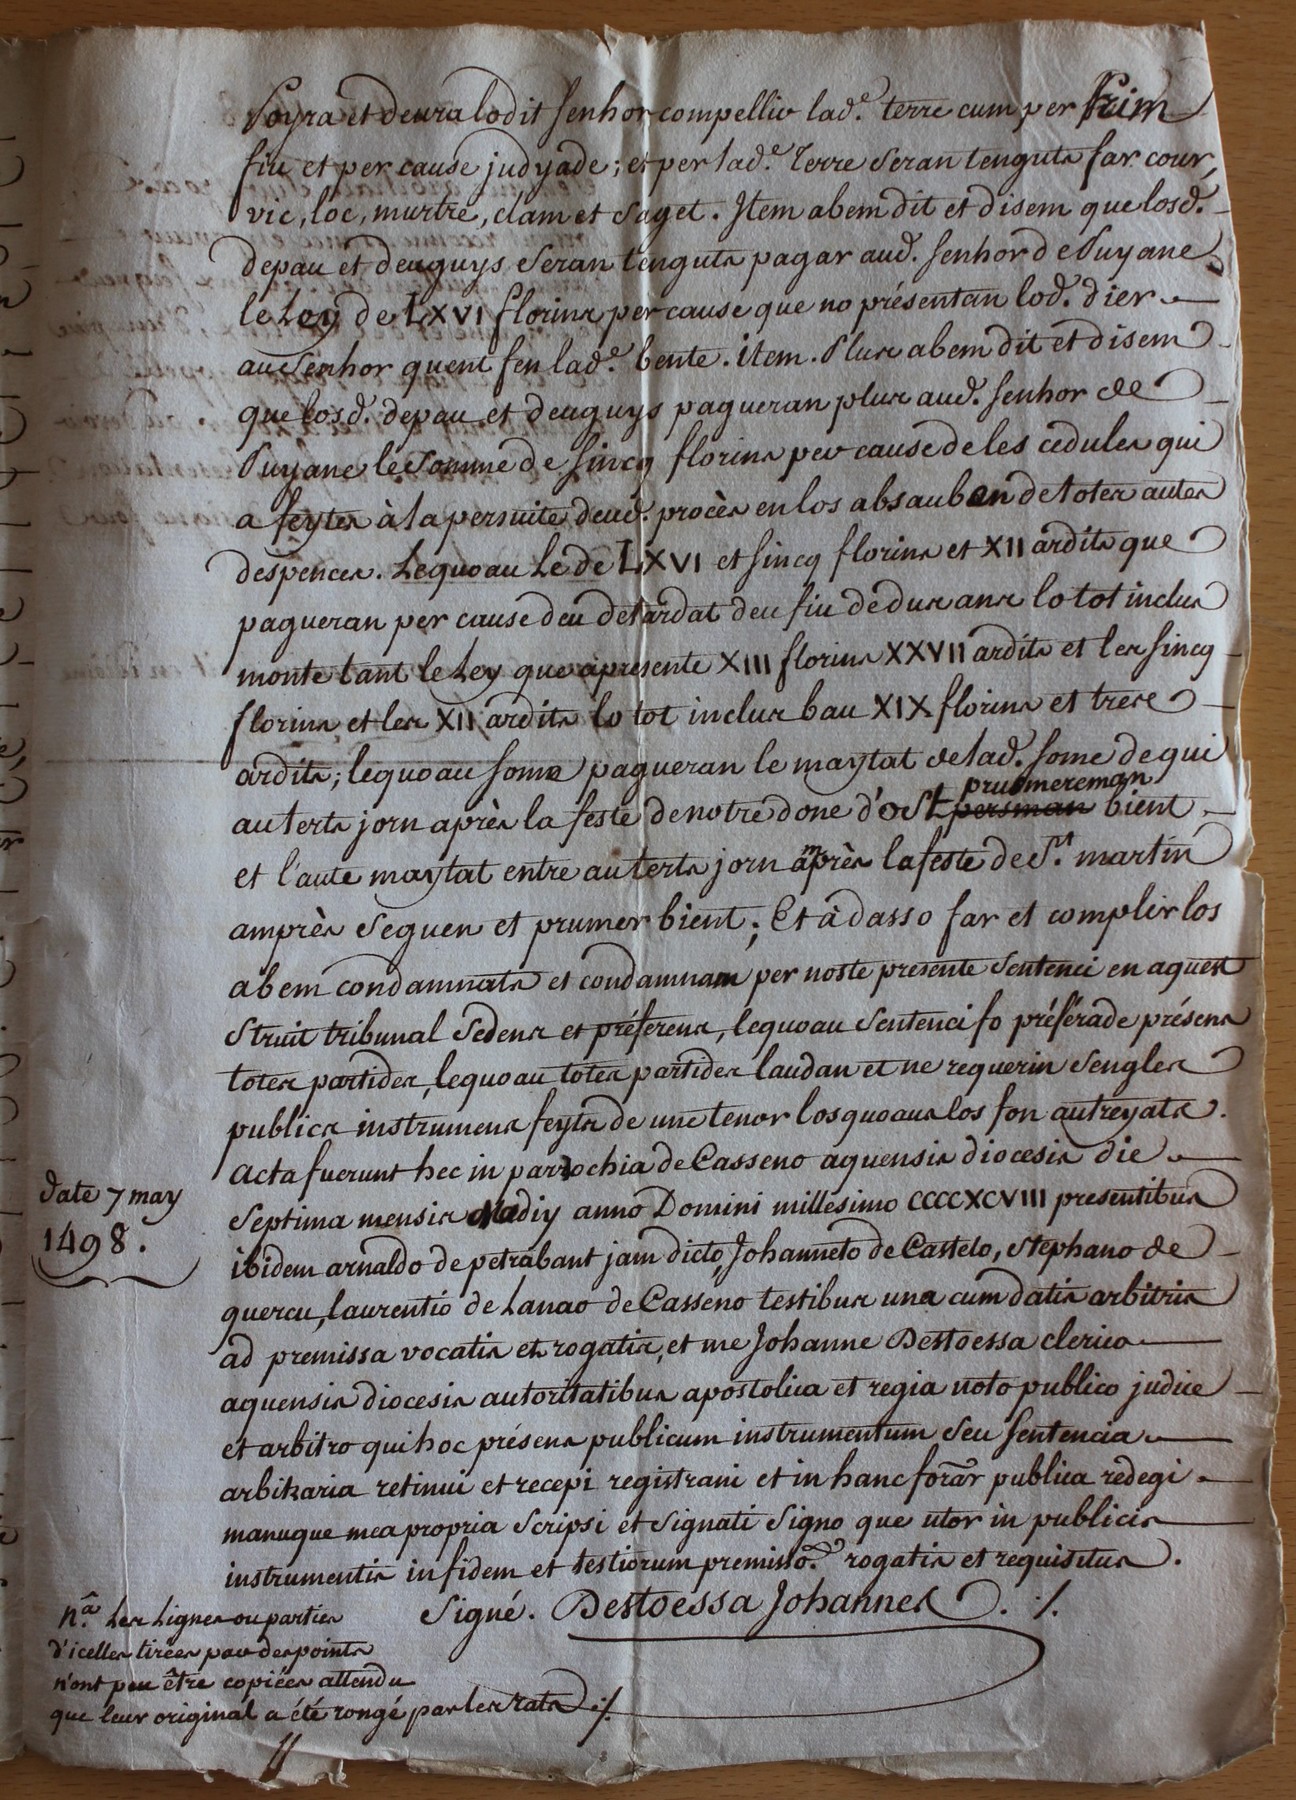 Poyra et deura lodit senhor compellir lad.e terre cum per prim
fiu et per cause judyade; et per lad.e Terre seran tenguts far cour,
vic, loc, murtre, clam et saget. Item abem dit et disem que losd.
depau et deuguys seran tenguts pagar aud. senhor de Puyane
le Ley de LXVI florins per cause que no présentan lod. dier
au senhor quent fen lad.e bente. item. Plus abem dit et disem
que losd. depau et deuguys pagueran plus aud. senhor de
Puyane le somme de sincq florins per cause de les cedules qui
a feytes à la persuite deud. procès en los absauben de totes autes
despences. Lequoau Le de LXVI et sincq florins et XII ardits que
pagueran per cause deu detardat deu fiu de dus ans lo tot inclus
monte tant le Ley que apresente XIII florins XXVII ardits et les sincq
florins et les XII ardits lo tot inclus bau XIX florins et trese
ardits; lequoau some pagueran le maytat de lad. some de qui
au terts jorn après la feste de notre done d'ost prumereman bient
et l'aute maytat entre au terts jorn amprès la feste de St. martin
amprès seguen et prumer bient; Et à dasso far et complir los
abem condamnats et condamnam per noste presente sentenci en aquest
struit tribunal sedens et préferens, lequoau sentenci fo préférade présens
totes partides, lequoau totes partides laudan et ne requerin sengles
publics instrumens feyts de une tenor losquoaus los fon autreyats.
Acta fuerunt hec in parrochia de Casseno aquensis diocesis die
septima mensis Madiy anno Domini millesimo CCCCXCVIII presentibus
ibidem arnaldo de petrabant jam dicto, Johanneto de Castelo, stephano de
quercu, laurentio de Lanao de Casseno testibus una cum datis arbitris
ad premissa vocatis et rogatis, et me Johanne Destoessa clerico
aquensis diocesis autoritatibus apostolica et regia noto publico judice
et arbitro qui hoc présens publicum instrumentum seu sentencia
arbitraria retinui et recepi registrani et in hanc forar publica redegi
manuque mea propria scripsi et signati signo que utor in publicis
instrumentis in fidem et testiorum premisso. rogatis et requisitus.
Signé. Destoessa Johannes ./.
date 7 may
1498.
n.a Les Lignes ou parties
d'icelles tirées par des points
n'ont peu être copiées attendu
que leur original a été rongé par les rats ./.